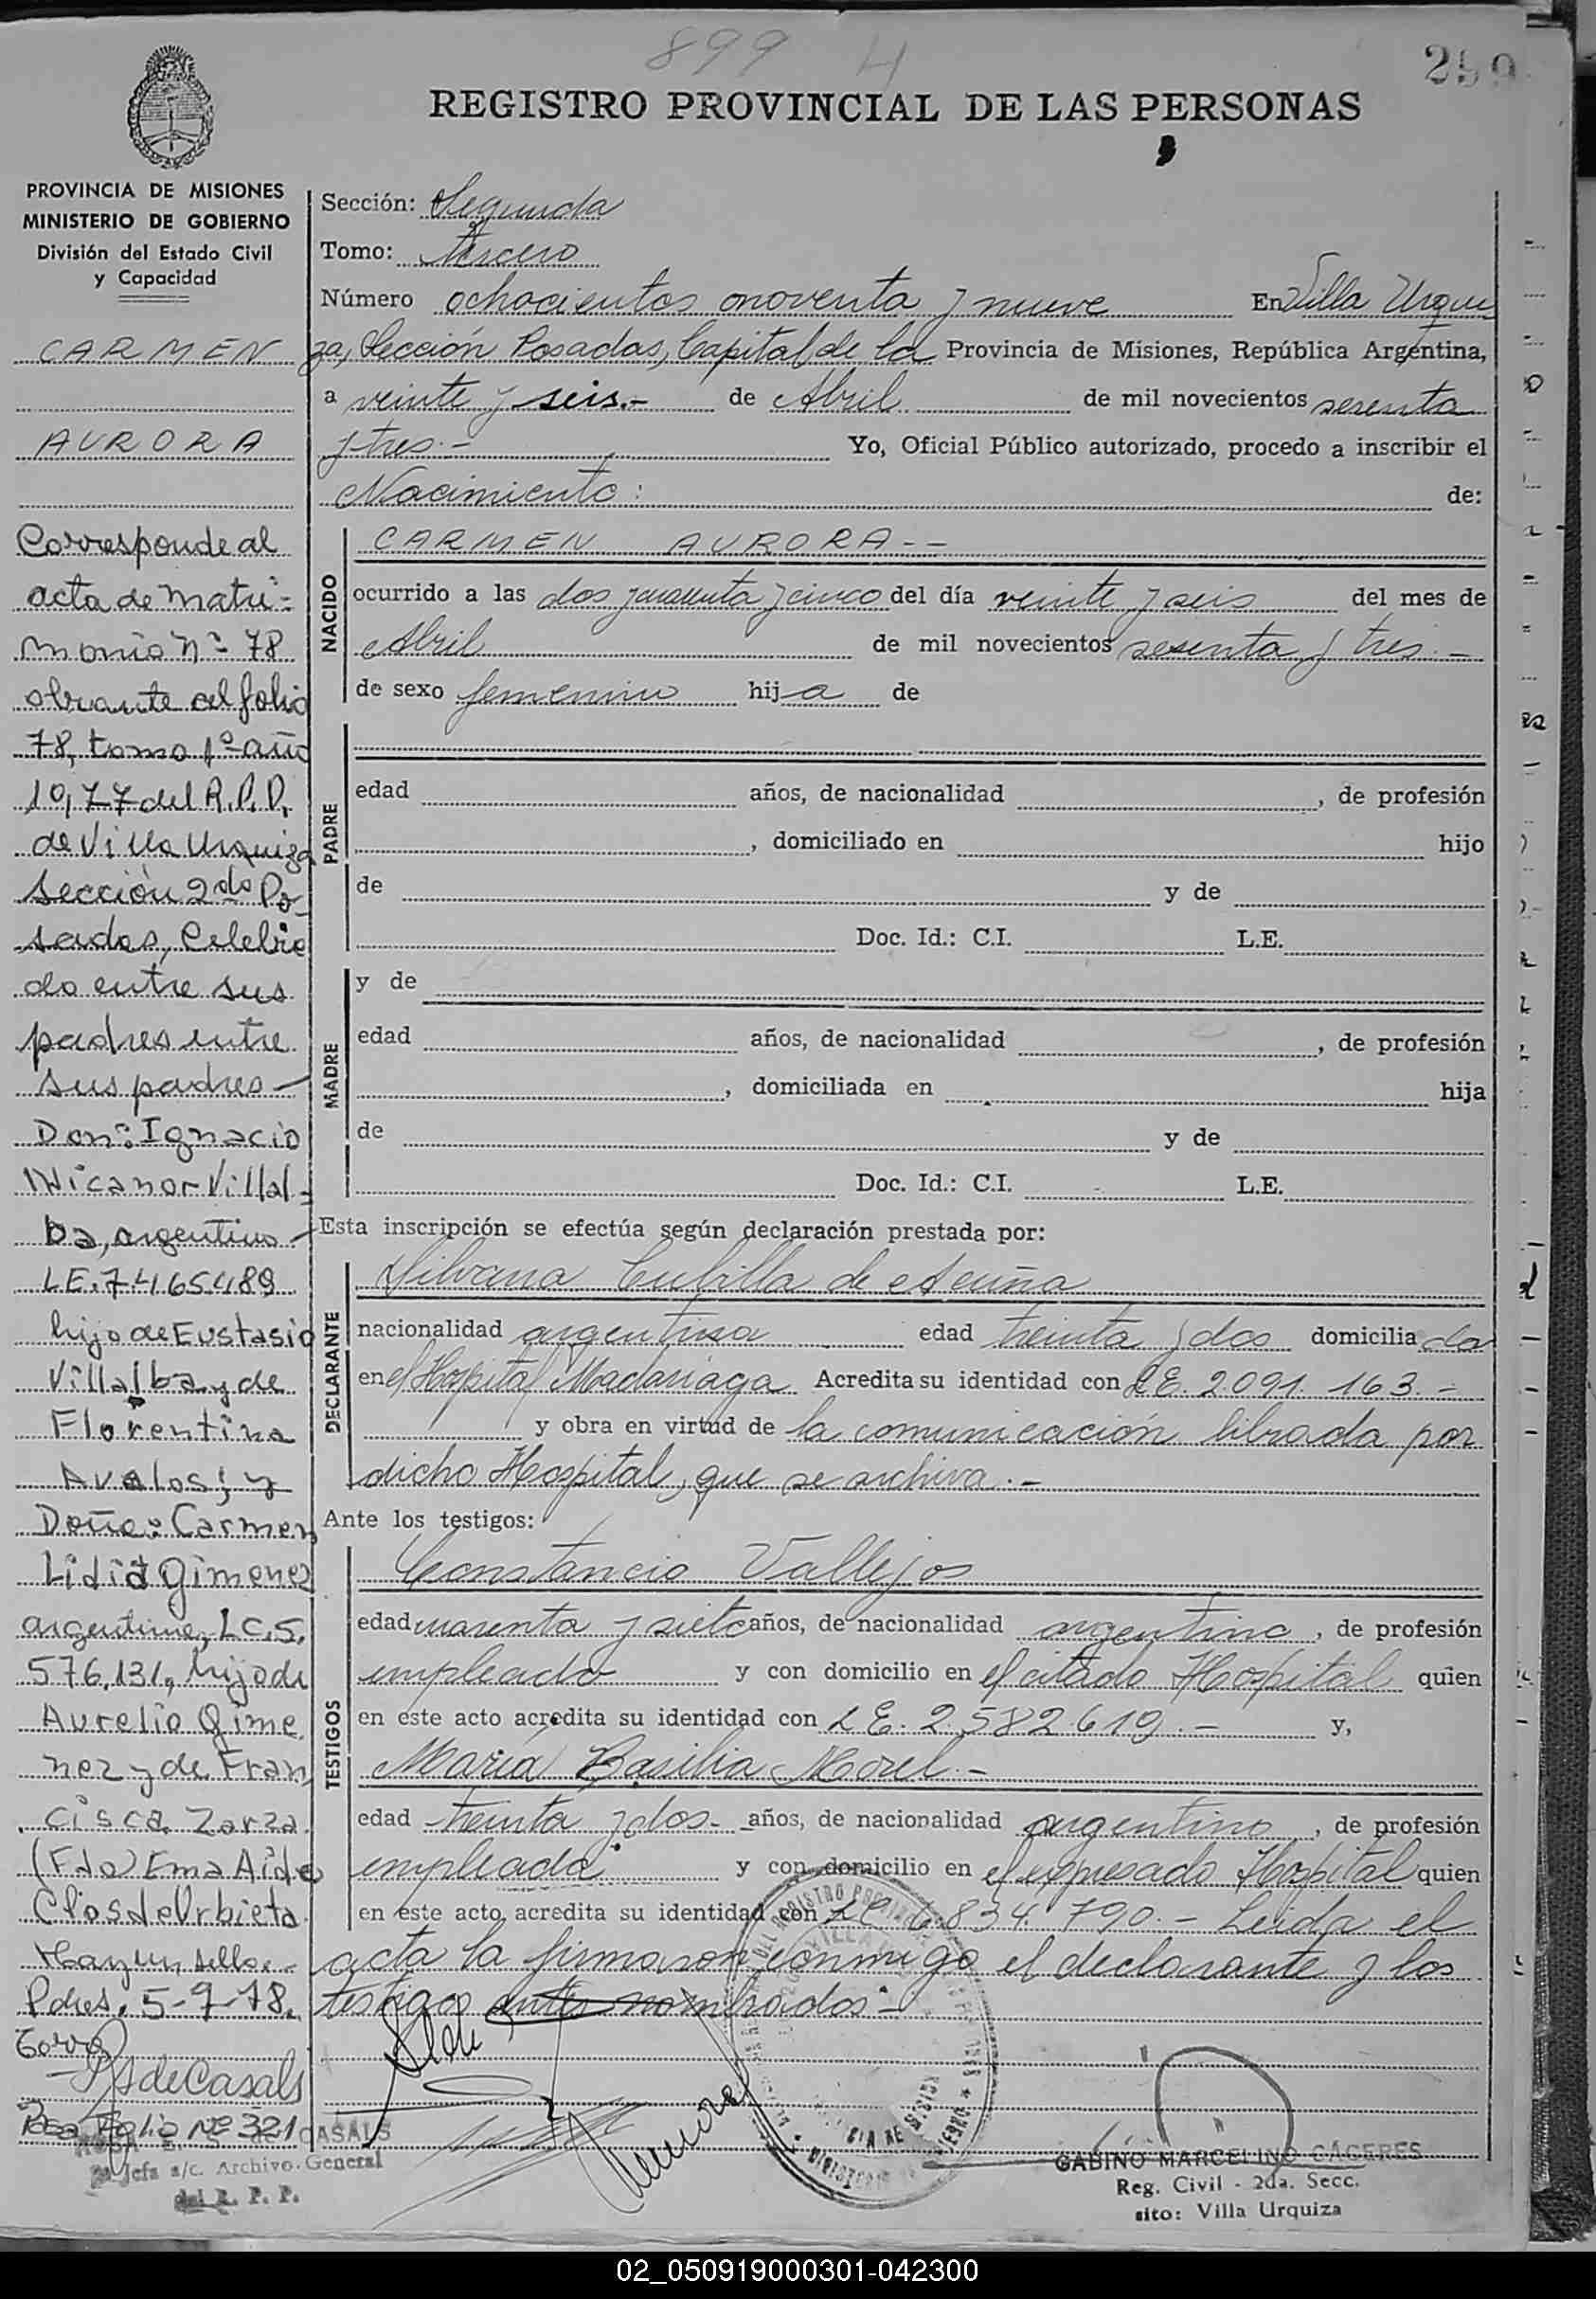 899 H
290
REGISTRO PROVINCIAL DE LAS PERSONAS
PROVINCIA DE MISIONES
MINISTERIO DE GOBIERNO
División del Estado Civil
y Capacidad
CARMEN
AURORA
Corresponde al
acta de matri-
monio Nº 78
obrante al folio
78, tomo 1º año
1977 del R.P.P.
de Villa Urquiza
Sección 2da Po-
sadas, Celebra
do entre sus
padres entre
sus padres-
Don: Ignacio
Nicanor Villal-
ba, argentino-
LE.7465489
hijo de Eustasio
Villalba y de
Florentina
Avalos; y
Doña: Carmen
Lidia Gimenez
argentina, LC.5.
576.131, hija de
Aurelio Gime
nez y de Fran
cisca Zarza
(Fdo) Ema Aide
Clos de Urbieta
Hay un sello.-
Pdas. 5-9-78.
de Casals
Folio Nº 321
CASALS
Jefa a/c. Archivo General
del R. P. P.
Sección: Segunda
Tomo: tercero
Número ochocientos noventa y nueve En Villa Urqui
za, Sección Posadas, Capital de la Provincia de Misiones, República Argentina,
a veinte y seis.- de Abril de mil novecientos sesenta
y tres.- Yo, Oficial Público autorizado, procedo a inscribir el
Nacimiento: de:
NACIDO
CARMEN AURORA--
ocurrido a las dos y cuarenta y cinco del día veinte y seis del mes de
Abril de mil novecientos sesenta y tres.-
de sexo femenino hija de
PADRE
edad años, de nacionalidad , de profesión
, domiciliado en hijo
de y de
Doc. Id.: C.I. L.E.
MADRE
y de
edad años, de nacionalidad , de profesión
, domiciliada en hija
de y de
Doc. Id.: C.I. L.E.
Esta inscripción se efectúa según declaración prestada por:
DECLARANTE
Silvana Cubilla de Acuña
nacionalidad argentina edad treinta y dos domiciliada
en el Hospital Madariaga Acredita su identidad con LE. 2091.163.-
y obra en virtud de la comunicación librada por
dicho Hospital, que se archiva.-
Ante los testigos:
TESTIGOS
Constancio Vallejos
edad cuarenta y siete años, de nacionalidad argentino, de profesión
empleado y con domicilio en el citado Hospital quien
en este acto acredita su identidad con LE. 2.582619.- y,
María Basilia Morel.-
edad treinta y dos- años, de nacionalidad argentina, de profesión
empleada y con domicilio en el expresado Hospital quien
en este acto acredita su identidad con LC 6.834.790.- Leida el
acta la firmaron conmigo el declarante y los
testigos antes nombrados-
GABINO MARCELINO CÁCERES
Reg. Civil - 2da. Secc.
sito: Villa Urquiza
02_050919000301-042300